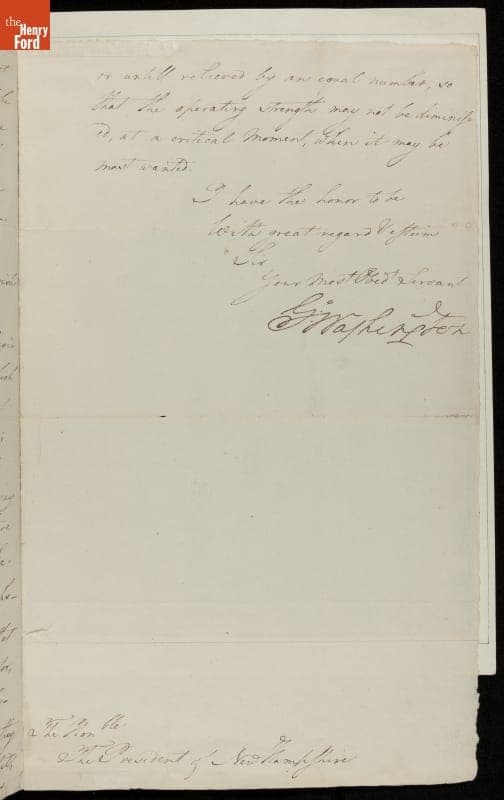 the
Henry
Ford
or untill relieved by an equal number, so
that the operating strength may not be diminish
ed, at a critical Moment, when it may be
most wanted.
I have the honor to be
With great regard & esteem
Sir
Your Most Obedt Servant
Go Washington
The Honble
The President of New Hampshire